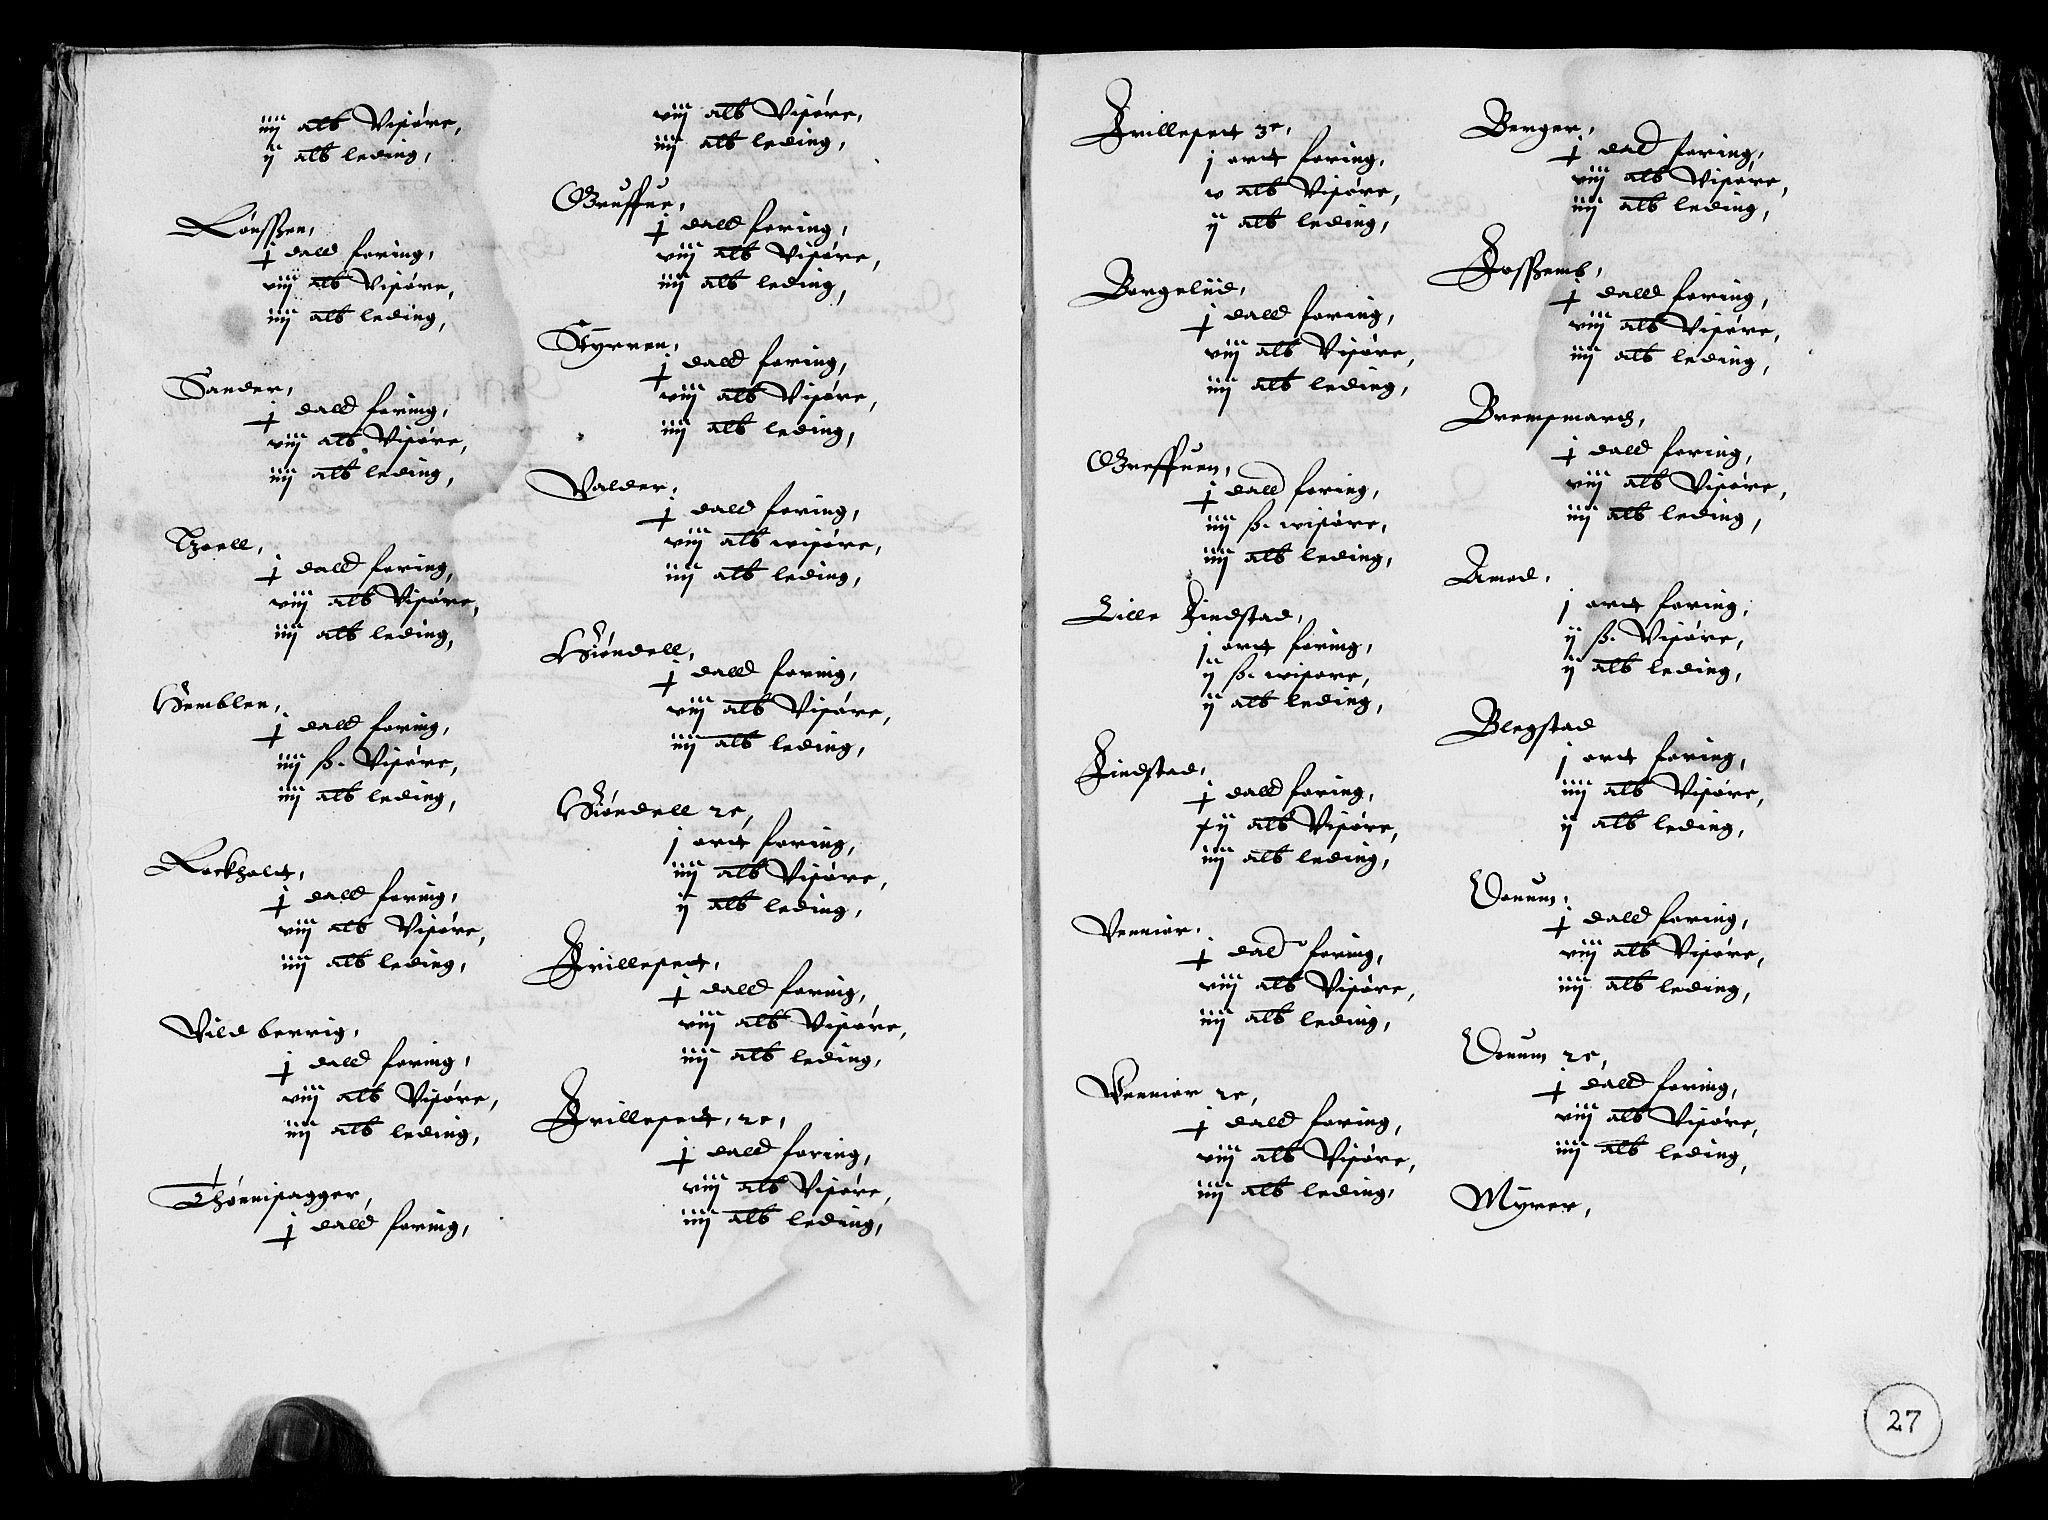 iiij alb Visøre,
ij alb leding,
Lønsszen,
j dald foring,
viij alb Visøre,
iiij alb leding,
Sander,
j dald foring,
viij alb Visøre,
iiij alb leding,
Thoell,
j dald foring,
viij alb Visøre,
iiij alb leding,
Hemblen,
j dald foring,
iiij ß. Visøre,
iiij alb leding,
Rockholt,
j dald foring,
viij alb Visøre,
iiij alb leding,
Vild berrig,
j dald foring,
viij alb Visøre,
iiij alb leding,
Thønnisagger,
j dald foring,
viij alb Visøre,
iiij alb leding,
Gruffue,
j dald foring,
viij alb Visøre,
iiij alb leding,
Styrren,
j dald foring,
viij alb Visøre,
iiij alb leding,
Valder,
j dald foring,
viij alb wisøre,
iiij alb leding,
Miøndell,
j dald foring,
viij alb Visøre,
iiij alb leding,
Miøndell 2e,
j ort foring,
iiij alb Visøre,
ij alb leding,
Frillesett,
j dald foring,
viij alb Visøre,
iiij alb leding,
Frillesett, 2e,
j dald foring,
viij alb Visøre,
iiij alb leding,
Frillesett 3e,
j ort foring,
v alb Visøre,
ij alb leding,
Borgeliid,
j dald foring,
viij alb Visøre,
iiij alb leding,
Greffuen,
j dald foring,
iiij ß. wisøre,
iiij alb leding,
Lille Findstad,
j ort foring,
ij ß. wisøre,
ij alb leding,
Findstad,
j dald foring,
xij alb Visøre,
iiij alb leding,
Vennior,
j dald foring,
viij alb Visøre,
iiij alb leding,
Vennior 2e,
j dald foring,
viij alb Visøre,
iiij alb leding,
Berger,
j dald foring,
viij alb Visøre,
iiij alb leding,
Fosszemb,
j dald foring,
viij alb Visøre,
iiij alb leding,
Bremsmarck,
j dald foring,
viij alb Visøre,
iiij alb leding,
Amod,
j ort foring,
ij ß. Visøre,
ij alb leding,
Blegstad
j ort foring,
iiij alb Visøre,
ij alb leding,
Donum,
j dald foring,
viij alb Visøre,
iiij alb leding,
Donum 2e,
j dald foring,
viij alb Visøre,
iiij alb leding,
Myrer,
27